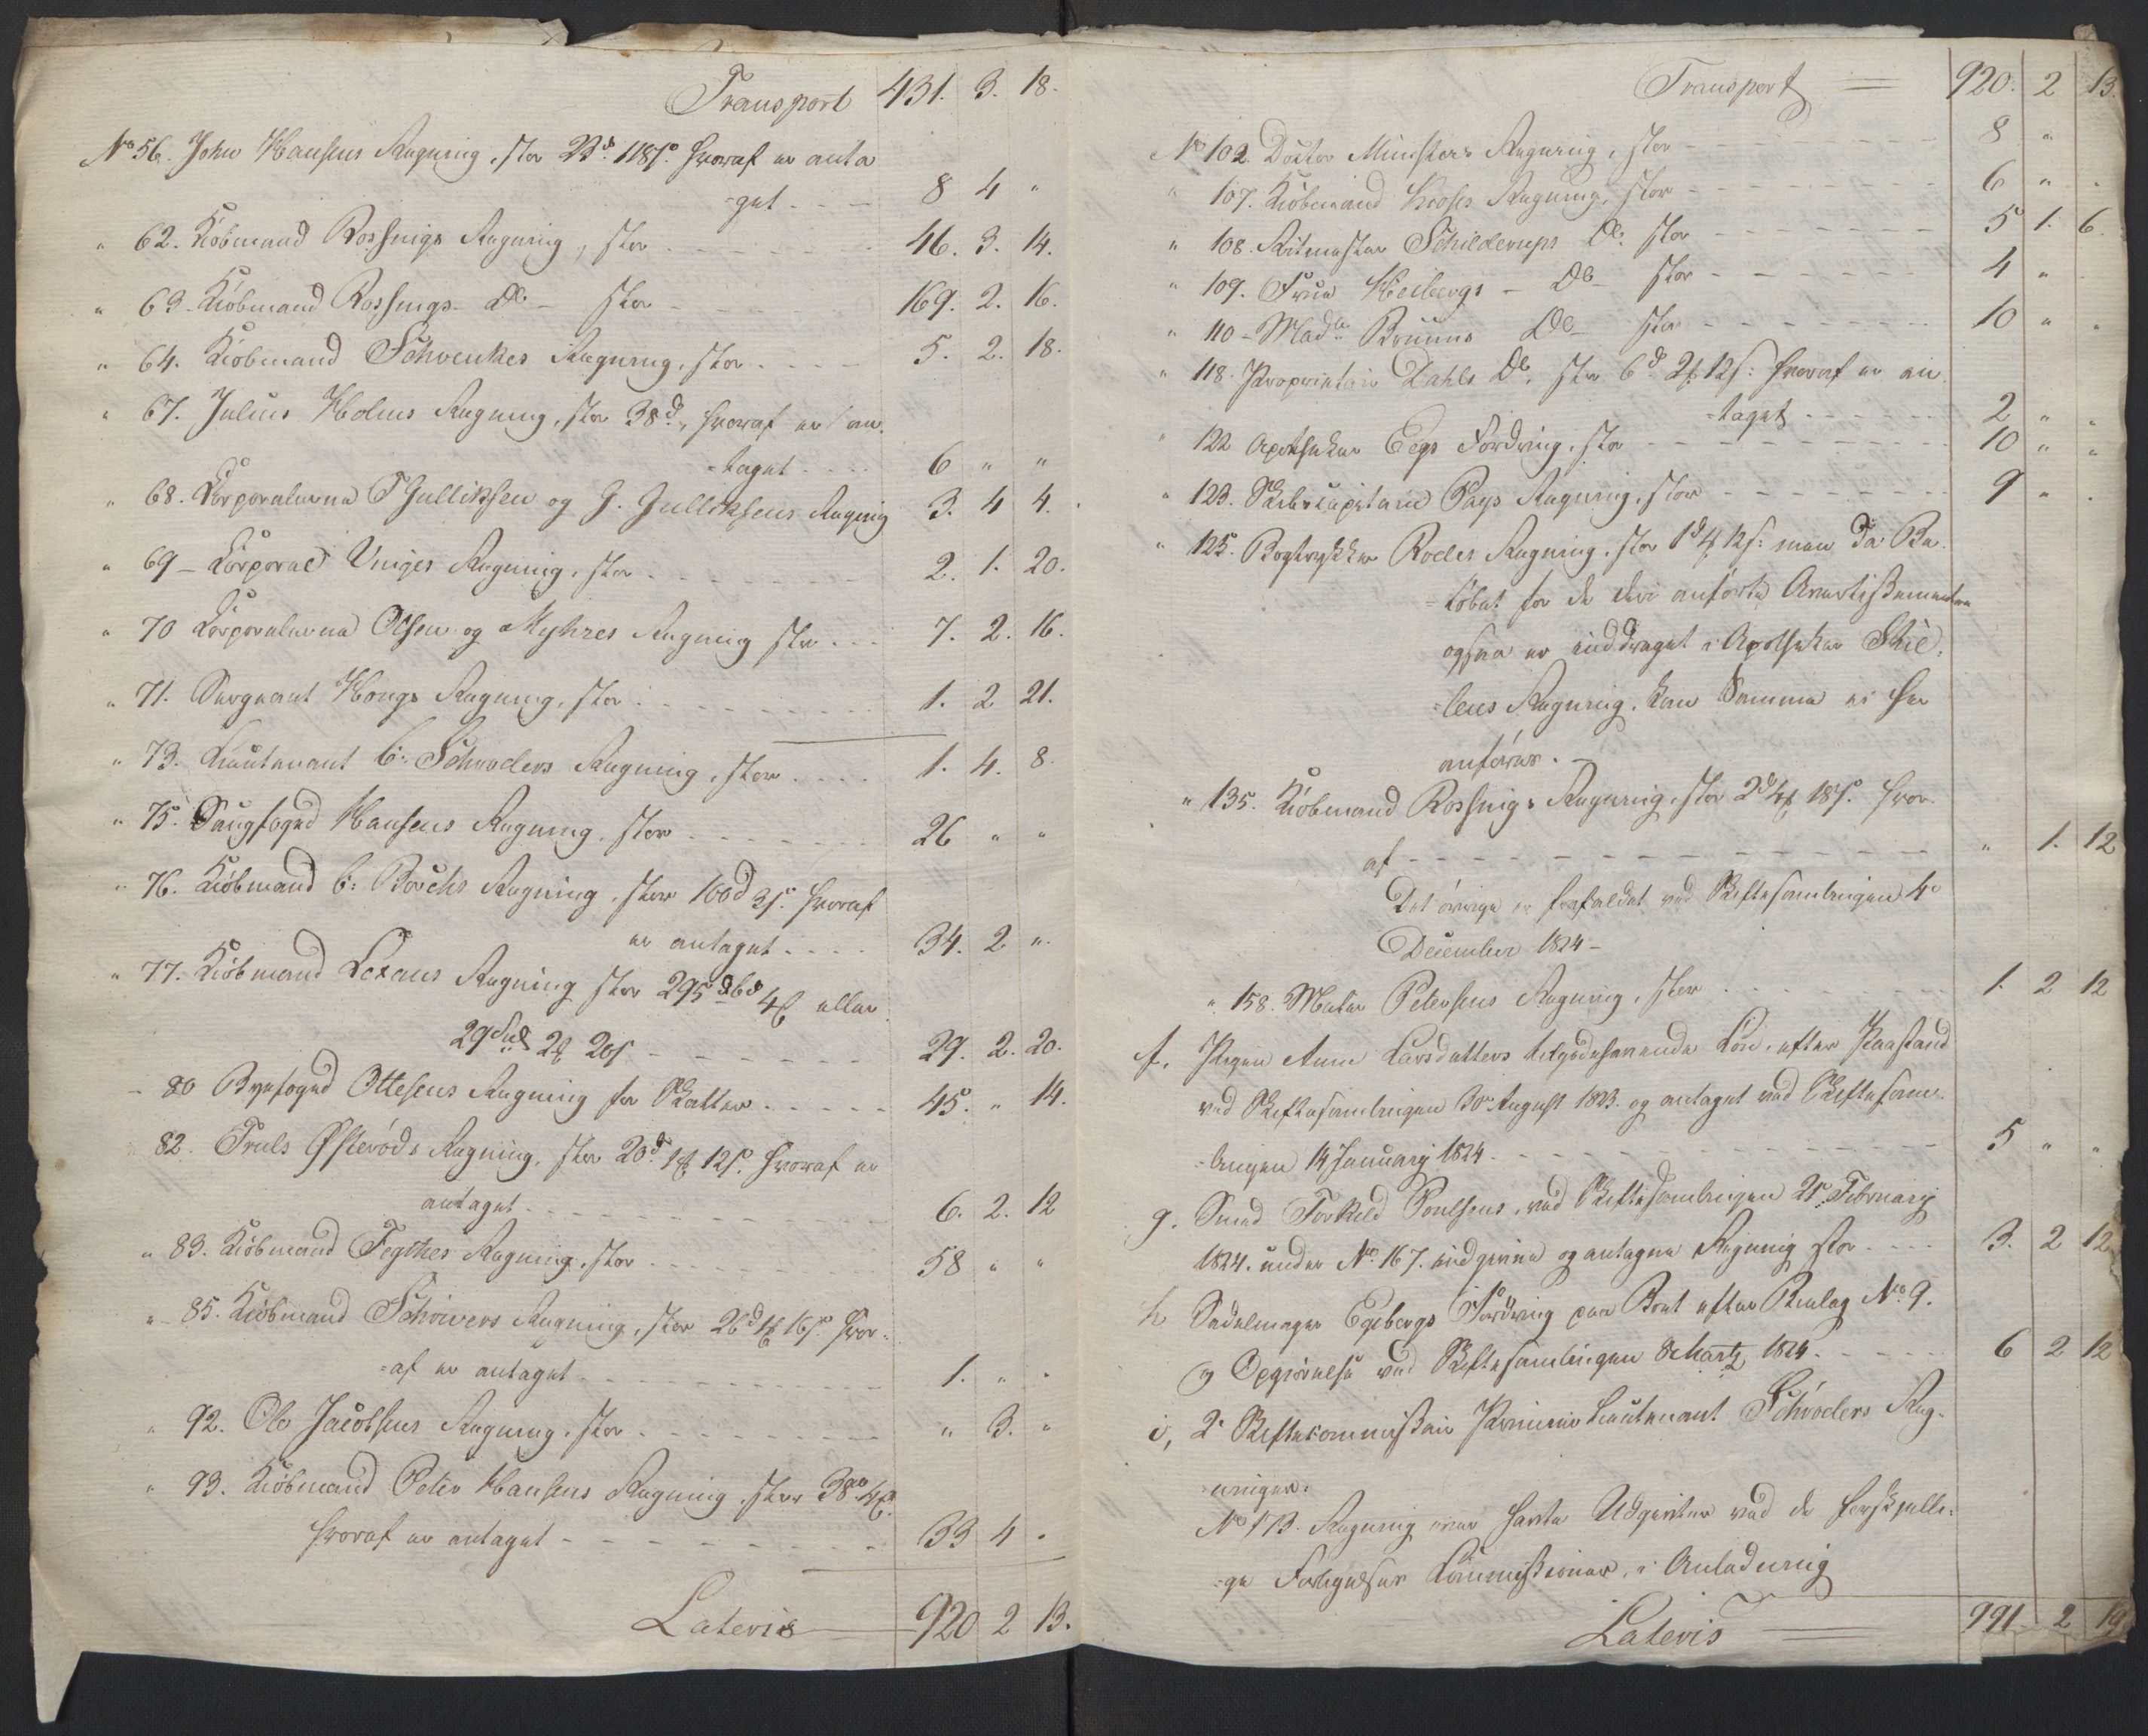 Transport 431. 3. 18.
No 56. John Hansens Regning, stor 23d. 118s. hvoraf er anta
=get - - - 8 4 "
" 62. Kiöbmand Rossings Regning, stor - - - 46. 3. 14.
" 63. Kiöbmand Rossings Do - stor - - - 169. 2. 16.
" 64. Kiöbmand Schvenkes Regning, stor - - - 5. 2. 18.
" 67. Julius Holms Regning, stor 38d., hvoraf er an
=taget - - - 6 " "
" 68. Corporalerne T Gulliksen og G. Gulliksens Regning 3. 4 4.
" 69 - Corporal Unges Regning, stor - - - 2. 1. 20.
" 70 Corporalerne Olsen og Myhres Regning stor - - - 7. 2. 16.
" 71. Sergeant Hougs Regning, stor - - - 1. 2 21.
" 73. Lieutenant C: Schrøders Regning, stor - - - 1. 4. 8.
" 75. Saugfoged Hansens Regning, stor - - - 26 " "
" 76. Kiöbmand C: Borchs Regning, stor 100d 3s. hvoraf
er antaget - - - 34. 2 "
" 77. Kiöbmand Lexaus Regning stor 295 4 eller
29 2 20s - - - 29. 2. 20.
- 80 Byefoged Ottesens Regning for Skatter - - - 45. " 14.
82. Truls Østeröds Regning, stor 20d. 1 12s. hvoraf er
antaget - - - 6. 2. 12
" 83. Kiöbmand Fegthes Regning, stor - - - 58 " "
" 85. Kiöbmand Schrivers Regning, stor 26d 1 16s. hvor=
=af er antaget - - - 1. " "
" 92. Ole Jacobsens Regning, stor - - - " 3. "
" 93. Kiöbmand Peter Hansens Regning, stor 38d 4
hvoraf er antaget - - - 33 4 "
Lateris 920 2 13.
Transport = 920. 2 13.
No 102. Doctor Münsters Regning, stor - - - 8 "
" 107. Kiöbmand Krohs Regning, stor - - - 6 " "
" 108. Ritmester Schilderups Do: stor - - - 5 1. 6.
" 109. Frue Heibergs - Do - stor - - - 4 "
" 110 - Made Bruuns Do - stor - - - 10 " "
" 118. Proprietair Dahls Do, stor 6d 2 12s: hvoraf er an
=taget - - - 2 " "
" 122 Apotheker Eegs Fordring, stor - - - 10 " "
" 123. Skibscapitain Pays Regning, stor - - - 9 " "
" 125. Bogtrykker Roeles Regning, stor 1d 4 12s: men da Be
=löbet for de deri anförte Avertissementer
ogsaa er inddraget i Apotheker Thie=
=lens Regning, kan Samme ei her
anföres.
" 135. Kiöbmand Rossings Regning, stor 2d 4 18s. hvor
af - - - " 1. 12
Det övrige er frafaldet ved Skiftesamlingen 4de
December 1824 -
" 158. Maler Petersens Regning, stor - - - 1. 2 12
f. Pigen Anne Larsdatters tilgodehavende Lön, efter Paastand
ved Skiftesamlingen 30te August 1823. og antaget ved Skiftesam
=lingen 14 January 1824 - - - 5 " "
g. Smed Torkild Poulsens, ved Skiftesamlingen 25. February
1824. under No. 167. indgivne og antagne Regning stor - - - 3. 2 12
h Sadelmager Egebergs Fordring paa Boet efter Beilag No 9.
og Opgiörelse ved Skiftesamlingen 8 Martz 1824 - - - 6 2 12
i, 2de Skiftecommissair Premier Lieutenant Schröders Reg=
=ninger:
No 113. Regning over havte Udgivter ved de forskjelli=
=ge Forligelses Commissioner, i Anledning
Lateris = 991. 2 19